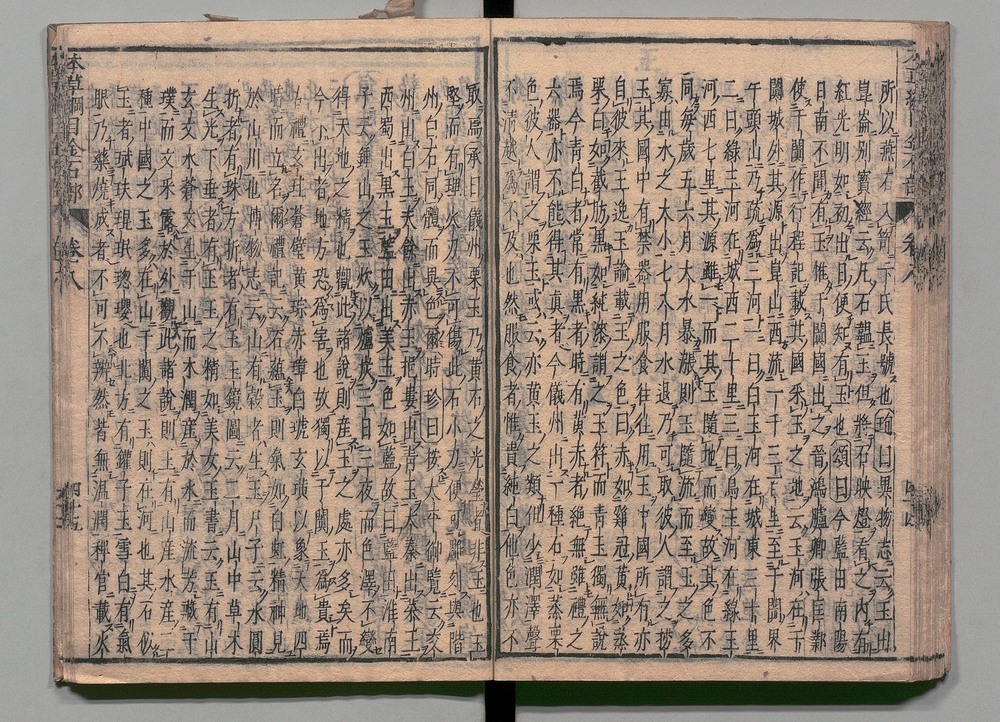 所以燕石入笥卞氏長號也珣曰異物志云玉出
崑崙別寳經云凡石韞玉但將石映燈看之内有
紅光明如初出日便知有玉也頌曰今藍田南陽
日南不聞有玉惟于闐國出之晉鴻臚卿張匡鄴
使于闐作行程記載其國采玉之地云玉河在于
闐城外其源出崑山西流一千三百里至于闐界
牛頭山乃疏爲三河一曰白玉河在城東三十里
二曰綠玉河在城西二十里三曰烏玉河在綠玉
河西七里其源雖一而其玉隨地而變故其色不
同每歲五六月大水暴漲則玉隨流而至玉之多
寡由水之大小七八月水退乃可取彼人謂之撈
玉其國中有禁器用服食往往用玉中國所有亦
自彼來王逸玉論載玉之色曰赤如雞冠黄如蒸
栗白如截肪黒如純漆謂之玉符而青玉獨無說
焉今青白者常有黒者時有黄赤者絶無雖禮之
六器亦不能得其真者今儀州出一種石如蒸栗
色彼人謂之栗玉或云亦黄玉之類但少潤澤聲
不清越爲不及也然服食者惟貴純白他色亦不
取焉承曰儀州栗玉乃黄石之光瑩者非玉也玉
堅而有理火刃不可傷此石小刀便可雕刻與階
州白石同體而異色爾時珍曰按太平御覽云交
州出白玉夫餘出赤玉挹婁出青玉大秦出菜玉
西蜀出黒玉藍田出美玉色如藍故曰藍田淮南
子云鍾山之玉炊以爐炭三日三夜而色澤不變
得天地之精也觀此諸說則産玉之處亦多矣而
今不出者地方恐爲害也故獨以于闐玉爲貴焉
古禮玄珪蒼璧黄琮赤璋白琥玄璜以象天地四
時而立名爾禮記云石蘊玉則氣如白虹精神見
於山川也博物志云山有穀者生玉尸子云水圓
折者有珠方折者有玉鏡圖云二月山中草木
生光下垂者有玉玉之精如美女玉書云玉有山
玄文水蒼文生于山而木潤産於水而流芳藏于
璞而文采露於外觀此諸說則玉有山産水産二
種中國之玉多在山于闐之玉則在河也其石似
玉者珷玞琨珉璁瓔也北方有罐子玉雪白有氣
眼乃藥燒成者不可不辨然若無温潤稗官載火
本草綱目金石部
卷八